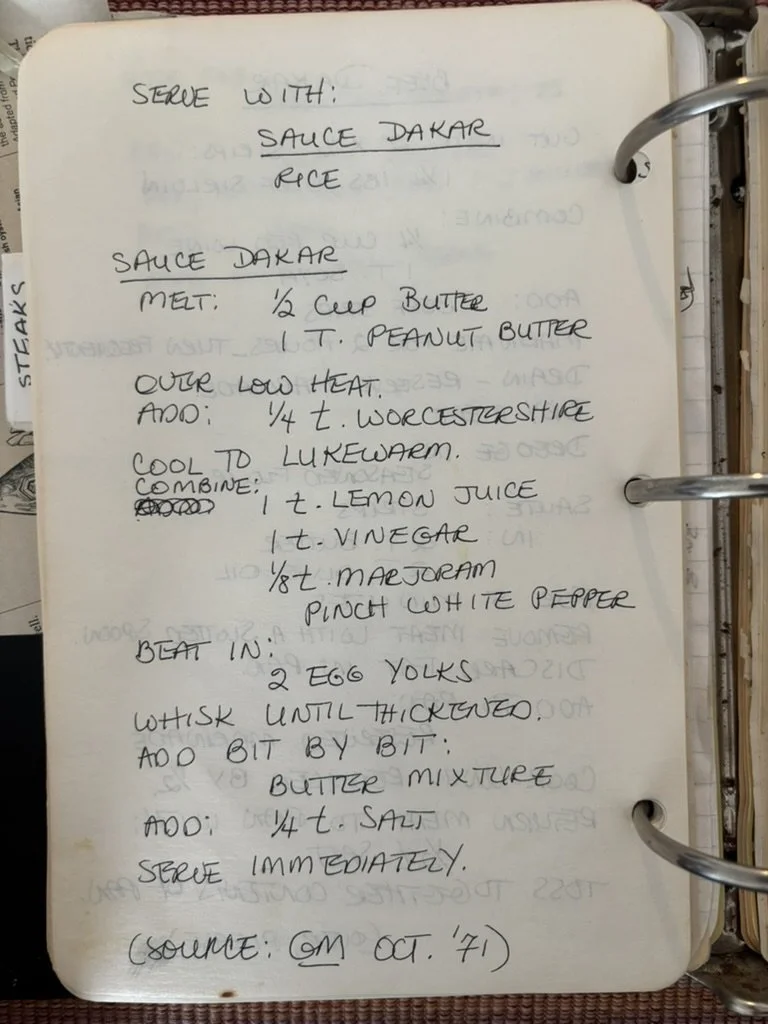 SERVE WITH:
SAUCE DAKAR
RICE
SAUCE DAKAR
MELT: 1/2 CUP BUTTER
1 T. PEANUT BUTTER
OVER LOW HEAT.
ADD: 1/4 t. WORCESTERSHIRE
COOL TO LUKEWARM.
COMBINE:
1 t. LEMON JUICE
1 t. VINEGAR
1/8 t. MARJORAM
PINCH WHITE PEPPER
BEAT IN:
2 EGG YOLKS
WHISK UNTIL THICKENED.
ADD BIT BY BIT:
BUTTER MIXTURE
ADD: 1/4 t. SALT
SERVE IMMEDIATELY.
(SOURCE: GM OCT. '71)
STEAKS